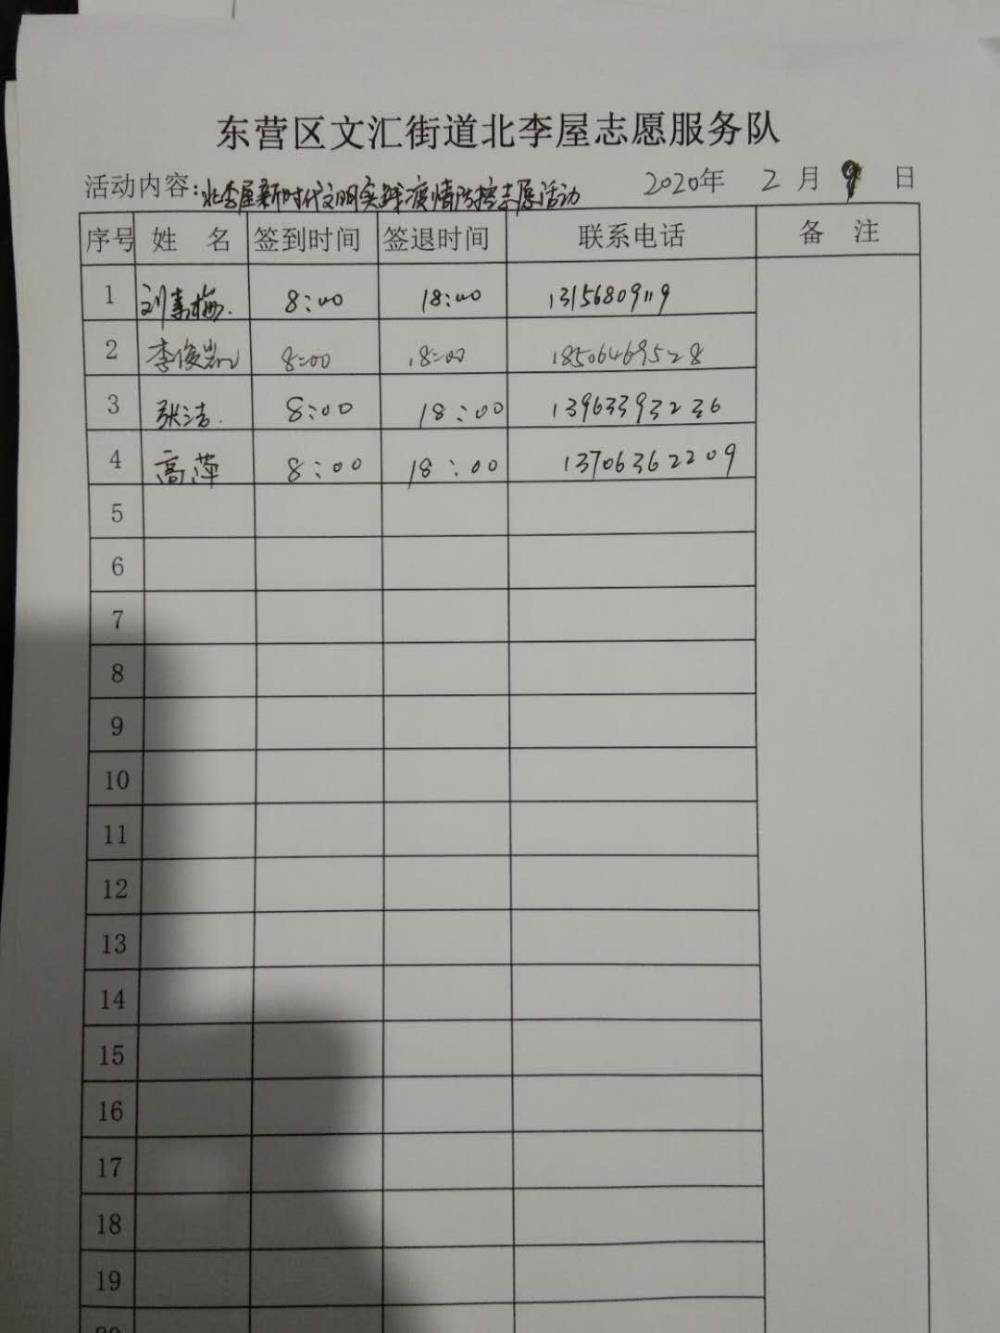 东营区文汇街道北李屋志愿服务队
活动内容:北李屋新时代文明实践疫情防控志愿活动 2020年 2 月 9 日
序号 姓 名 签到时间 签退时间 联系电话 备 注
1 刘素梅. 8:00 18:00 13156809119
2 李俊岩 8:00 18:00 18506469528
3 张洁. 8:00 18:00 13963393236
4 高萍 8:00 18:00 13706362209
5
6
7
8
9
10
11
12
13
14
15
16
17
18
19
20